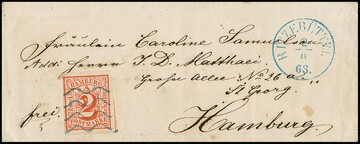 Fräulein Caroline Samuelson
Addr. Herrn J. D. Matthaei
Große Allee No 26 a
St Georg
frei.
Hamburg
HAMBURG
2
POSTMARKE
RITZEBÜTTEL
6
63.